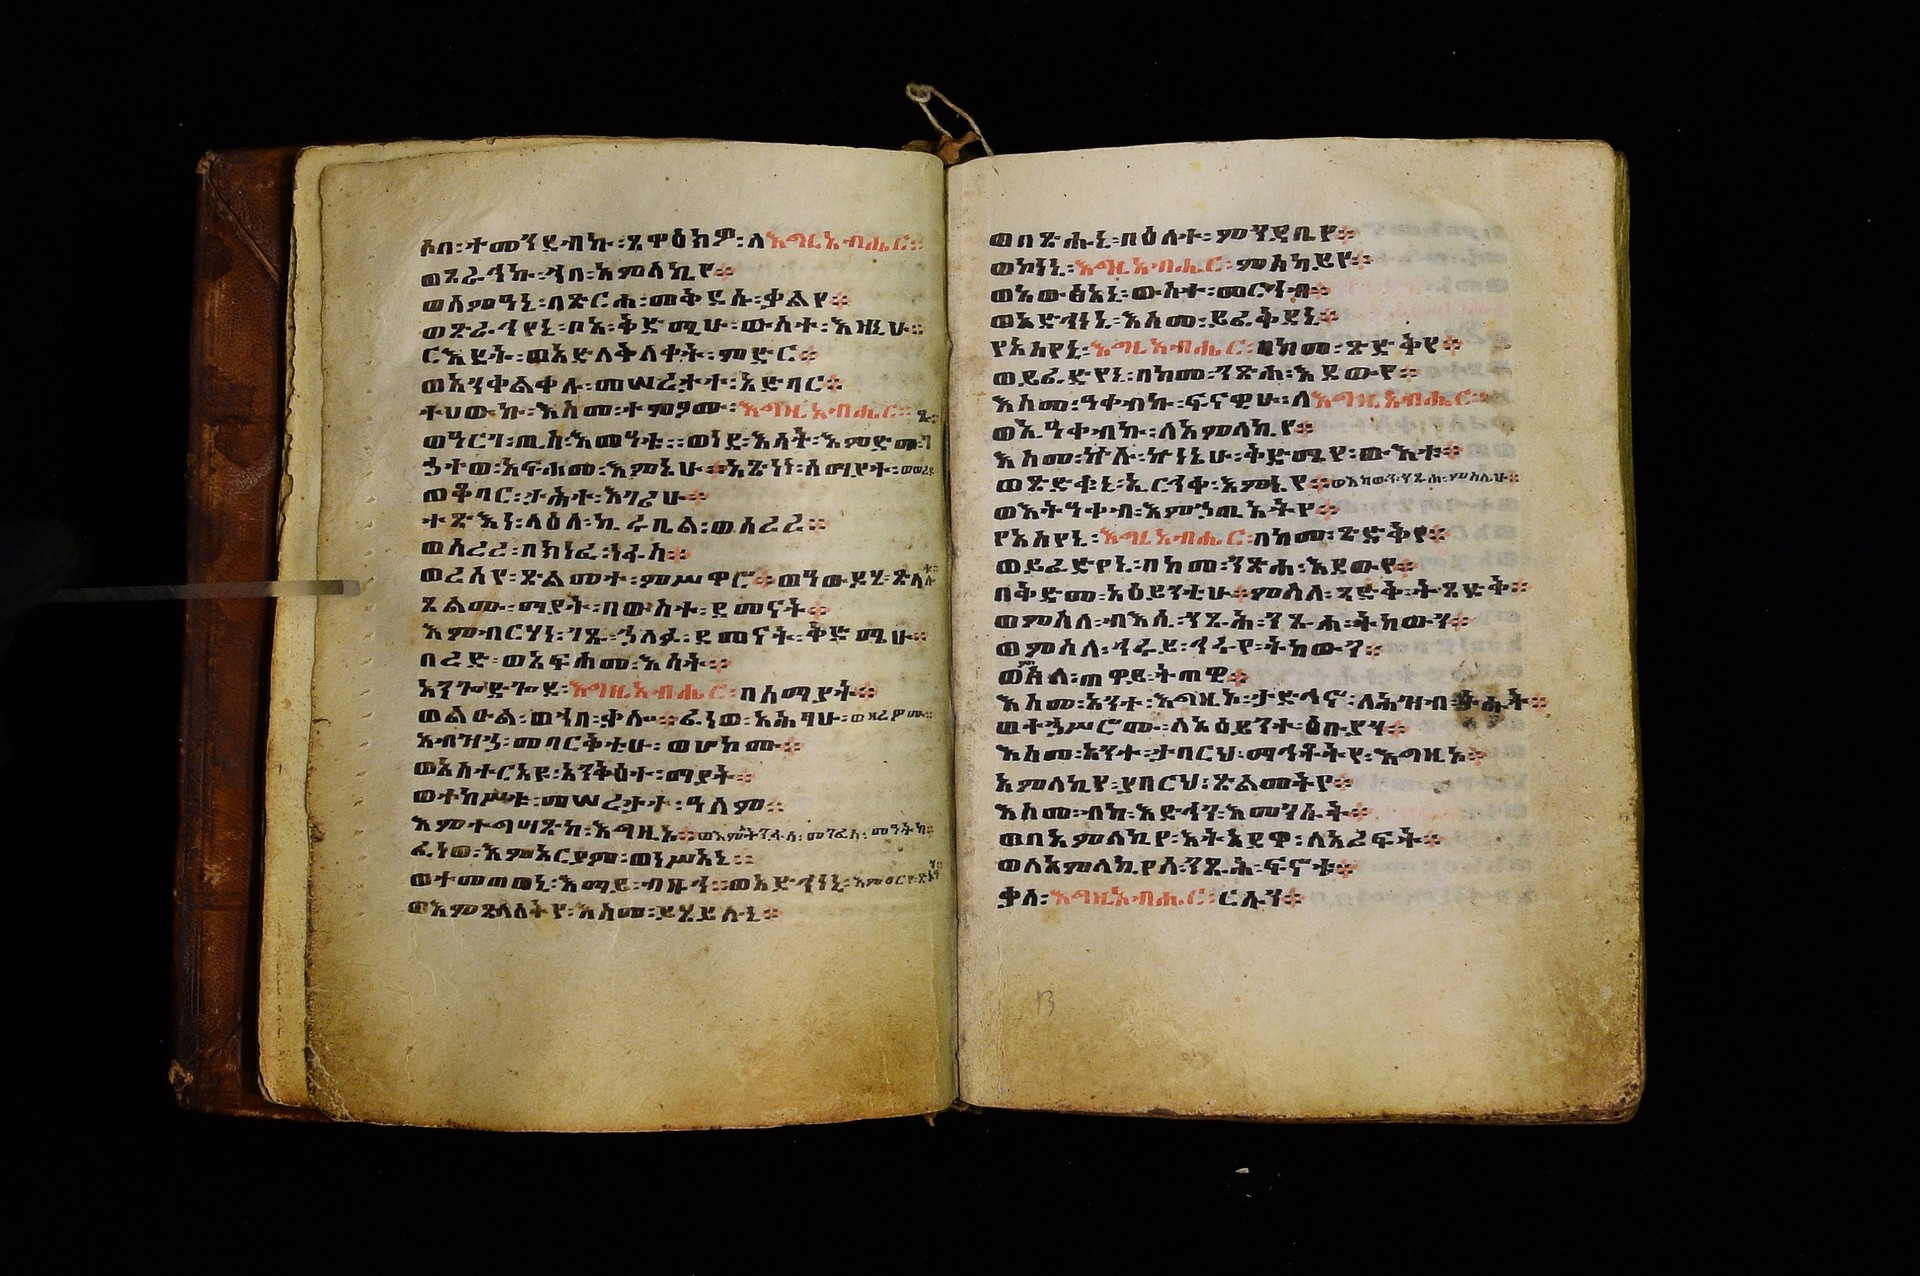 ሶበ፡ተመንደብኩ፡ጸዋዕክዎ፡ለእግዚአብሔር።
ወጸራኅኩ፡ኀበ፡አምላኪየ።
ወሰምዓኒ፡በጽርሐ፡መቅደሱ፡ቃልየ።
ወጽራኅየኒ፡ቦአ፡ቅድሜሁ፡ውስተ፡እዝኒሁ።
ርእደት፡ወአድለቅለቀት፡ምድር።
ወአንቀልቀሉ፡መሠረታተ፡አድባር።
ተሀውኩ፡እስመ፡ተምዖሙ፡እግዚአብሔር።
ወዓርገ፡ጢስ፡እመዓቱ።ወነደ፡እሳት፡እምድመ፡ገ ጹ።
ኃተወ፡አፍሐመ፡እምኔሁ።አጽነነ፡ሰማያተ፡ወወረደ
ወቆባር፡ታሕተ፡እገሪሁ።
ተጽእነ፡ላዕለ፡ኪሩቤል፡ወሰረረ።
ወሰረረ፡በክነፈ፡ነፋስ።
ወረሰየ፡ጽልመተ፡ምሥዋሮ።ወዓውዶሂ፡ጽላሎቱ።
ጸልሙ፡ማያት፡በውስተ፡ደመናት።
እምብርሃነ፡ገጹ፡ኃለፈ፡ደመናት፡ቅድሜሁ።
በረድ፡ወአፍሐመ፡እሳት።
አንጐድጐደ፡እግዚአብሔር፡በሰማያት።
ወልዑል፡ወኀበ፡ቃሎ።ፈነወ፡አሕፃሁ፡ወዘረዎሙ።
አብዝኃ፡መባርቅቲሁ፡ወሆከሙ።
ወአስተርአዩ፡አንቅዕተ፡ማያት።
ወተከሥቱ፡መሠረታተ፡ዓለም።
እምተግሣጽከ፡እግዚኦ። መንፈሰ፡መዓትከ።
ፈነወ፡እምአርያም፡ወነሥአኒ።
ወተመጠወኒ፡እማይ፡ብዙኅ።ወአድኀነኒ፡እምፀርየ፡ጽኑዓን።
ወእምጸላእትየ፡እስመ፡ይሄይሉኒ።
ወበጽሑኒ፡በዕለተ፡ምንዳቤየ።
ወኮነኒ፡እግዚአብሔር፡ምስካይየ።
ወአውፅአኒ፡ውስተ፡መርኅብ።
ወአድኀነኒ፡እስመ፡ይፈቅደኒ።
የአስየኒ፡እግዚአብሔር፡በከመ፡ጽድቅየ።
ወይፈድየኒ፡በከመ፡ንጽሐ፡እደውየ።
እስመ፡ዓቀብኩ፡ፍናዊሁ፡ለእግዚአብሔር።
ወኢዓቀብኩ፡ለአምላኪየ።
እስመ፡ኵሉ፡ኵነኔሁ፡ቅድሜየ፡ውእቱ።
ወጽድቁኒ፡ኢርኅቀ፡እምኔየ።ወእከውን፡ንጹሐ፡ምስሌሁ።
ወእትዓቀብ፡እምኃጢአትየ።
የአስየኒ፡እግዚአብሔር፡በከመ፡ጽድቅየ።
ወይፈድየኒ፡በከመ፡ንጽሐ፡እደውየ።
በቅድመ፡አዕይንቲሁ።ምስለ፡ጻድቅ፡ትጸድቅ።
ወምስለ፡ብእሲ፡ንጹሕ፡ንጹሐ፡ትከውን።
ወምስለ፡ኅሩይ፡ኅሩየ፡ትከውን።
ወምስለ፡ጠዋይ፡ትጠዊ።
እስመ፡አንተ፡እግዚኦ፡ታድኅኖ፡ለሕዝብ፡ትሑት።
ወተኃሥሮሙ፡ለአዕይንተ፡ዕቡያን።
እስመ፡አንተ፡ታበርህ፡ማኅቶትየ፡እግዚኦ።
አምላኪየ፡ያበርህ፡ጽልመትየ።
እስመ፡ብከ፡እድኅን፡እመንሱት።
ወበአምላኪየ፡እትአደዋ፡ለአረፍት።
ወለአምላኪየሰ፡ንጹሕ፡ፍኖቱ።
ቃለ፡እግዚአብሔር፡ርሱን።
13